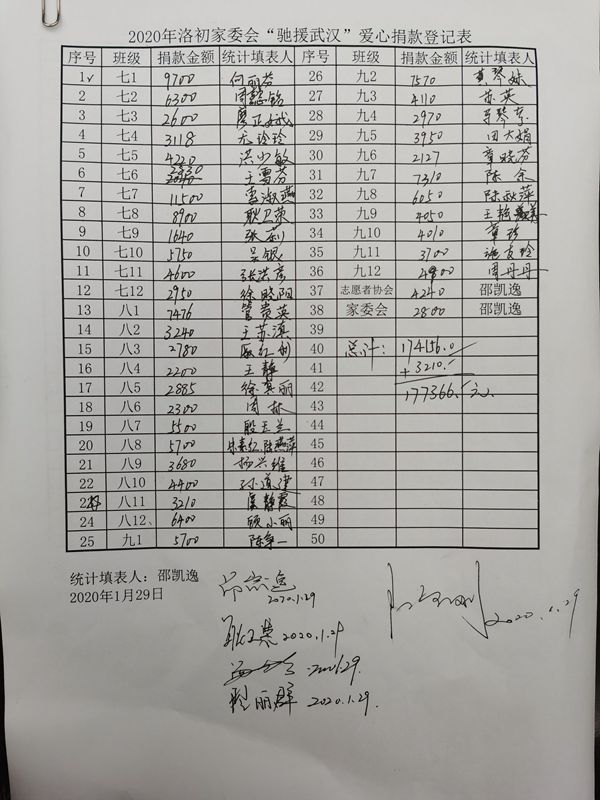 2020年洛初家委会“驰援武汉”爱心捐款登记表
序号 班级 捐款金额 统计填表人 序号 班级 捐款金额 统计填表人
1 七1 9700 何丽芬 26 九2 7570 黄琴妹
2 七2 6300 周懿钫 27 九3 4110 苏英
3 七3 2600 28 九4 2970
4 七4 3118 尤玲玲 29 九5 3950 田大娟
5 七5 4220 洪少敏 30 九6 2127 章晓芬
6 七6 王雪芬 31 九7 7310 陈余
7 七7 11500 32 九8 6050 陈秋萍
8 七8 8900 耿卫荣 33 九9 4050 王艳
9 七9 1640 张莉 34 九10 4010 章珍
10 七10 5750 吴银 35 九11 3700
11 七11 4600 张洪彦 36 九12 周丹丹
12 七12 2950 徐晓阳 37 志愿者协会 4240 邵凯逸
13 八1 7476 管贵英 38 家委会 2800 邵凯逸
14 八2 3240 王苏滇 39
15 八3 2780 40 总计: 174156.0
16 八4 2200 王静 41 +3210.
17 八5 2885 徐真丽 42 177366. 元
18 八6 2300 周林 43
19 八7 5500 殷玉兰 44
20 八8 5700 45
21 八9 3680 杨兴维 46
22 八10 4400 孙道津 47
八11 3210 虞静霞 48
24 八12 6400 顾小丽 49
25 九1 5700 陈第一 50
统计填表人：邵凯逸
2020年1月29日
2020.1.29
2020.1.29
耿卫荣 2020.1.29
丽群 2020.1.29.